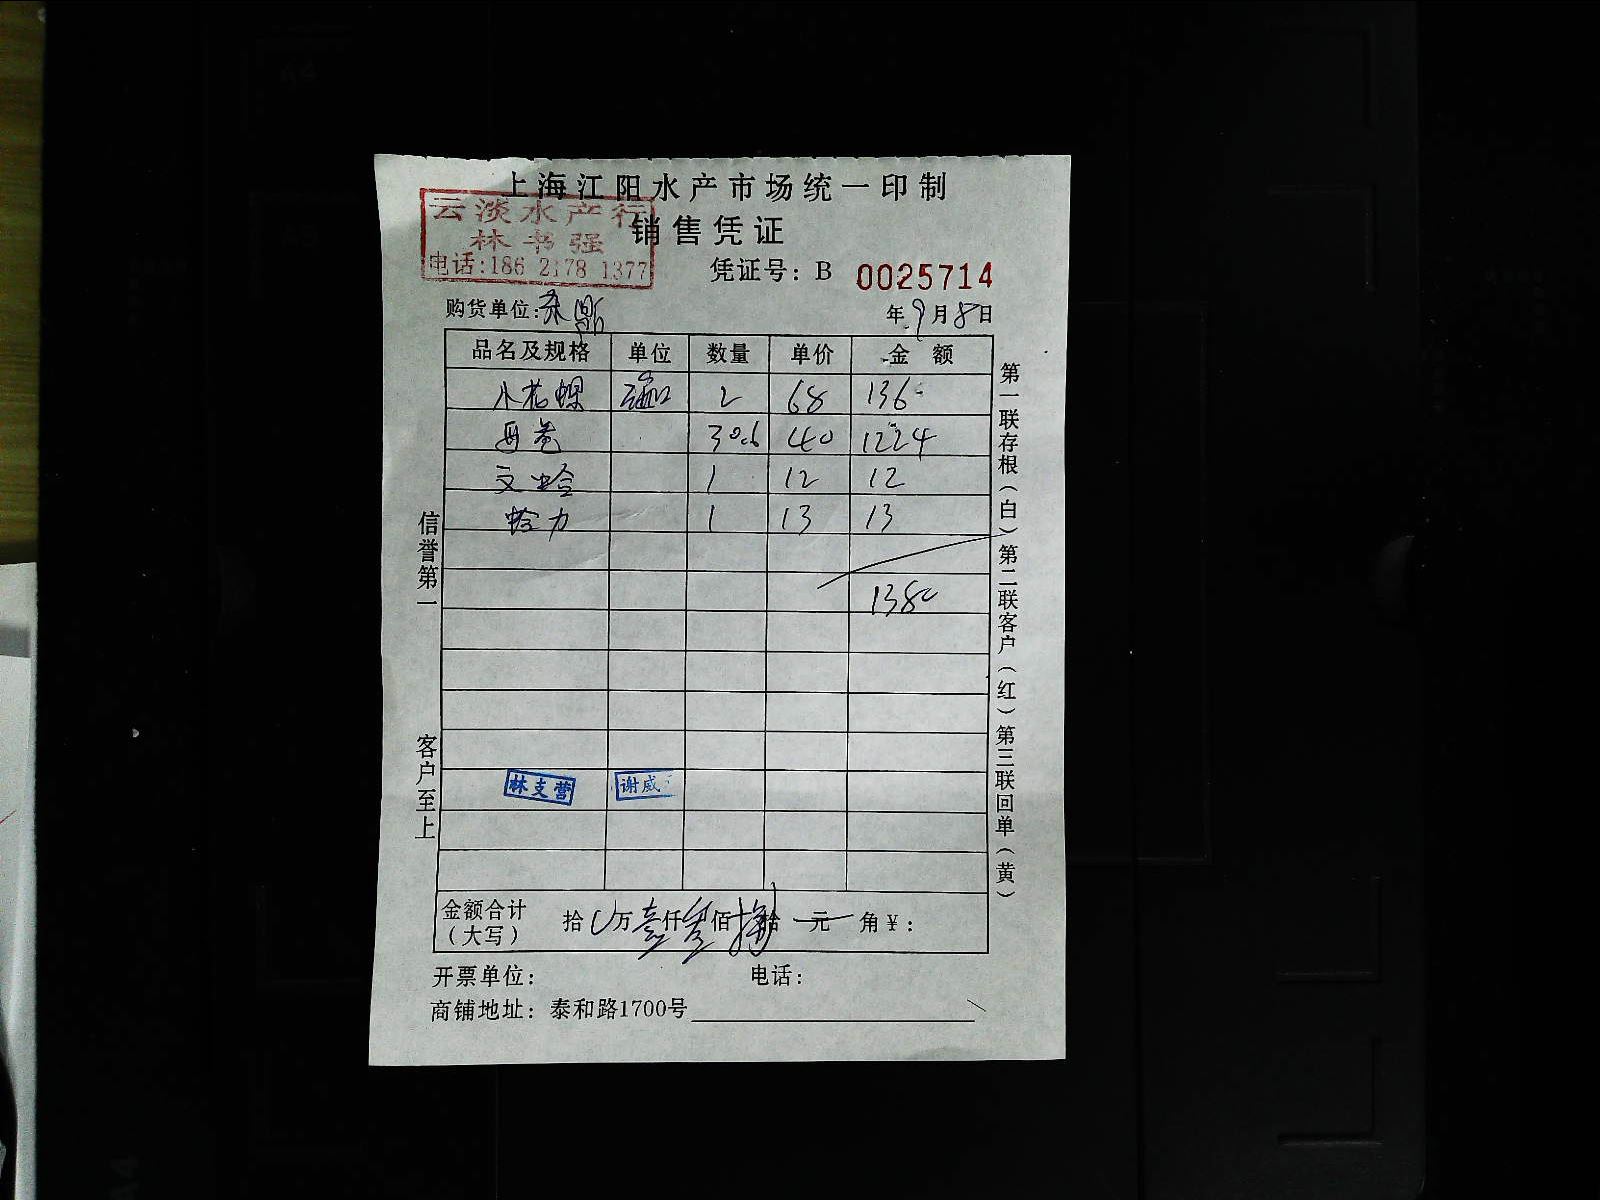 上海江阳水产市场统一印制
云淡水产行
林书强
电话:186 2178 1377
销售凭证
凭证号: B 0025714
购货单位:
年 9月8日
品名及规格 单位 数量 单价 金额
小花螺 2 68 136-
30.6 40 1224
文蛤 1 12 12
蛤力 1 13 13
138
信誉第一
客户至上
第一联存根(白)第二联客户(红)第三联回单(黄)
林支营 谢威
金额合计
(大写)
拾 万壹仟 佰 拾 元 角¥:
开票单位: 电话:
商铺地址: 泰和路1700号